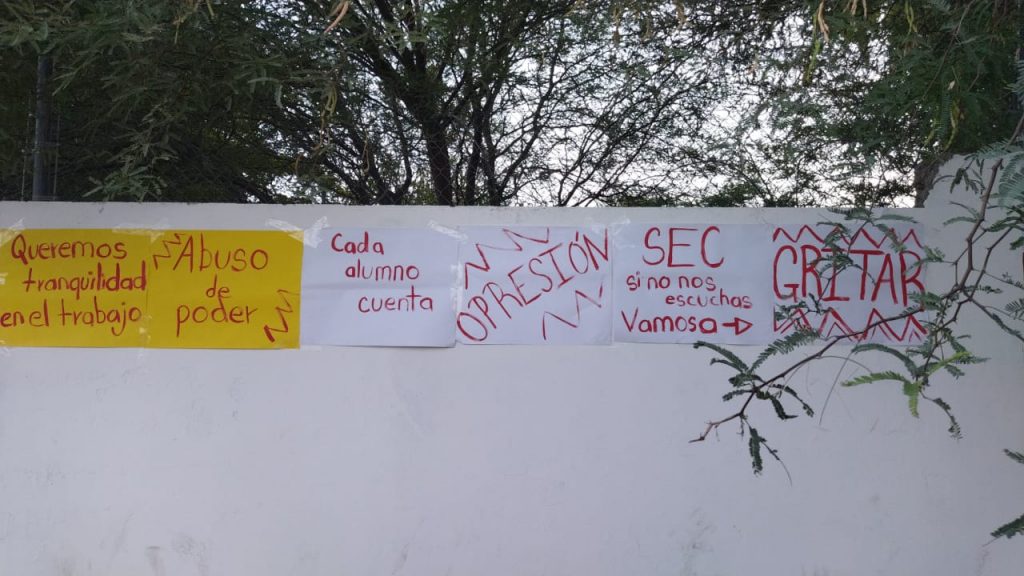 Queremos
tranquilidad
en el trabajo
Abuso
de
poder
Cada
alumno
cuenta
OPRESIÓN
SEC
si no nos
escuchas
Vamos a →
GRITAR